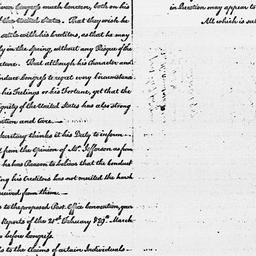 gives Congress much concern, both on his
of the United States. That they wish he
settle with his Creditors, so that he may
ly in the Spring, without any Risque of the
tune. That although his Character and
induce Congress to regret every Circumstance
his Feelings or his Fortune, yet that the
ignity of the United States has also strong
ention and Care.—
cretary thinks it his Duty to inform—
from the Opinion of Mr. Jefferson as from
he has Reason to believe that the Conduct
ing his Creditors has not merited the harsh
ceived from them.—
to the proposed Post Office Convention, your
Reports of the 28th February & 29th March
before Congress.
to the Claims of certain Individuals—
in Question may appear to
All which is sub